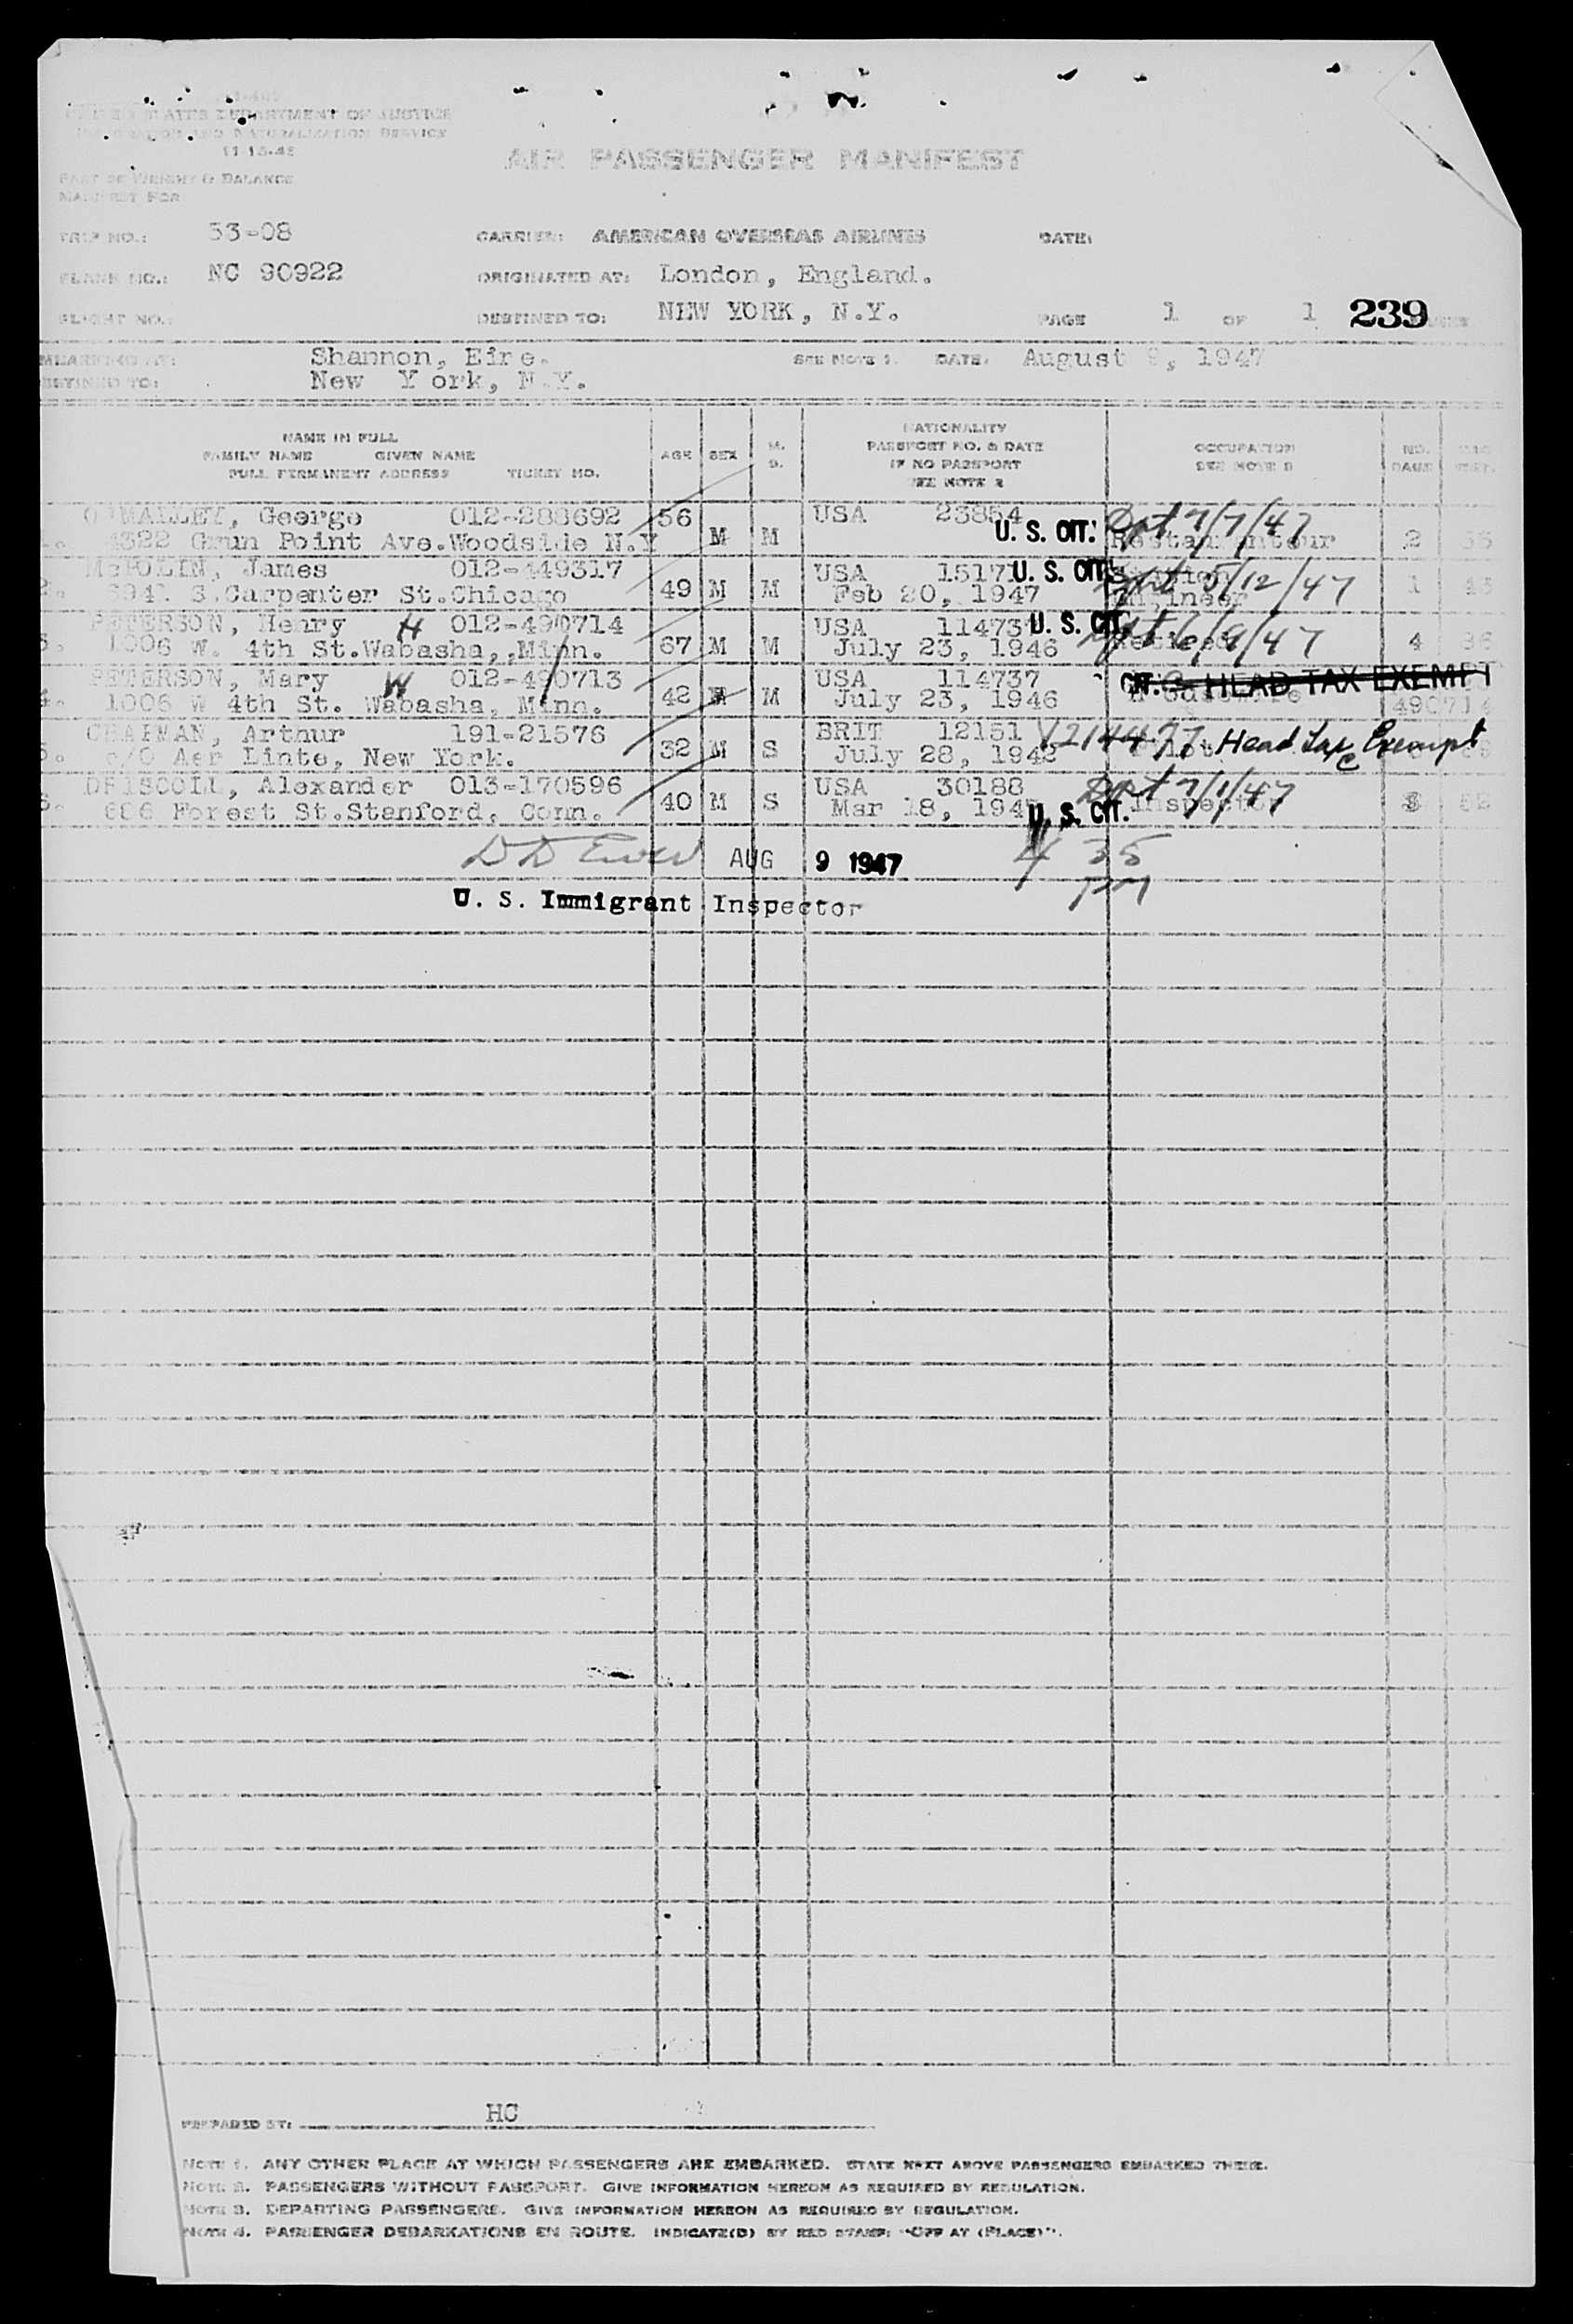 UNITED STATES DEPARTMENT OF JUSTICE
IMMIGRATION AND NATURALIZATION SERVICE
11-15-45
AIR PASSENGER MANIFEST
PART OF WEIGHT & BALANCE
MANIFEST FOR
TRIP NO.: 53-08 CARRIER: AMERICAN OVERSEAS AIRLINES DATE:
PLANE NO.: NC 90922 ORIGINATED AT: London, England.
FLIGHT NO.: DESTINED TO: NEW YORK, N.Y. PAGE 1 OF 1 239
EMBARKING AT: Shannon, Eire. SEE NOTE 1. DATE: August 9, 1947
DESTINED TO: New Y ork, N.Y.
NAME IN FULL
FAMILY NAME GIVEN NAME
FULL PERMANENT ADDRESS TICKET NO.
AGE SEX M. S.
NATIONALITY
PASSPORT NO. & DATE
IF NO PASSPORT
SEE NOTE 2
OCCUPATION
SEE NOTE 3
NO. BAGS
O'MALLEY, George 012-288692 56 M M USA 23854 U. S. CIT. Dpt 7/7/47
4322 Grun Point Ave.Woodside N.Y Restauranteur 2
McPOLIN, James 012-449317 49 M M USA 15171 U. S. CIT.
S.Carpenter St.Chicago Feb 20, 1947 Engineer 5/12/47 1
3. PETERSON, Henry H 012-490714 67 M M USA 114737 U. S. CIT.
1006 W. 4th St.Wabasha,,Minn. July 23, 1946 Retired 4
4. PETERSON, Mary W 012-490713 42 M USA 114737 CIT. HEAD TAX EXEMPT
1006 W 4th St. Wabasha, Minn. July 23, 1946 490714
5. CHAPMAN, Arthur 191-21576 32 M S BRIT 12151 V214477 Head Tax Exempt
c/O Aer Linte, New York. July 28, 1942
DRISCOLL, Alexander 013-170596 40 M S USA 30188 Dpt 7/1/47
606 Forest St.Stanford, Conn. Mar 18, 1947 U. S. CIT. Inspector
AUG 9 1947 4 35
PM
U. S. Immigrant Inspector
PREPARED BY: HC
NOTE 1. ANY OTHER PLACE AT WHICH PASSENGERS ARE EMBARKED. STATE NEXT ABOVE PASSENGERS EMBARKED THERE.
NOTE 2. PASSENGERS WITHOUT PASSPORT. GIVE INFORMATION HEREON AS REQUIRED BY REGULATION.
NOTE 3. DEPARTING PASSENGERS. GIVE INFORMATION HEREON AS REQUIRED BY REGULATION.
NOTE 4. PASSENGER DEBARKATIONS EN ROUTE. INDICATE(D) BY RED STAMP: "OFF AT (PLACE)".